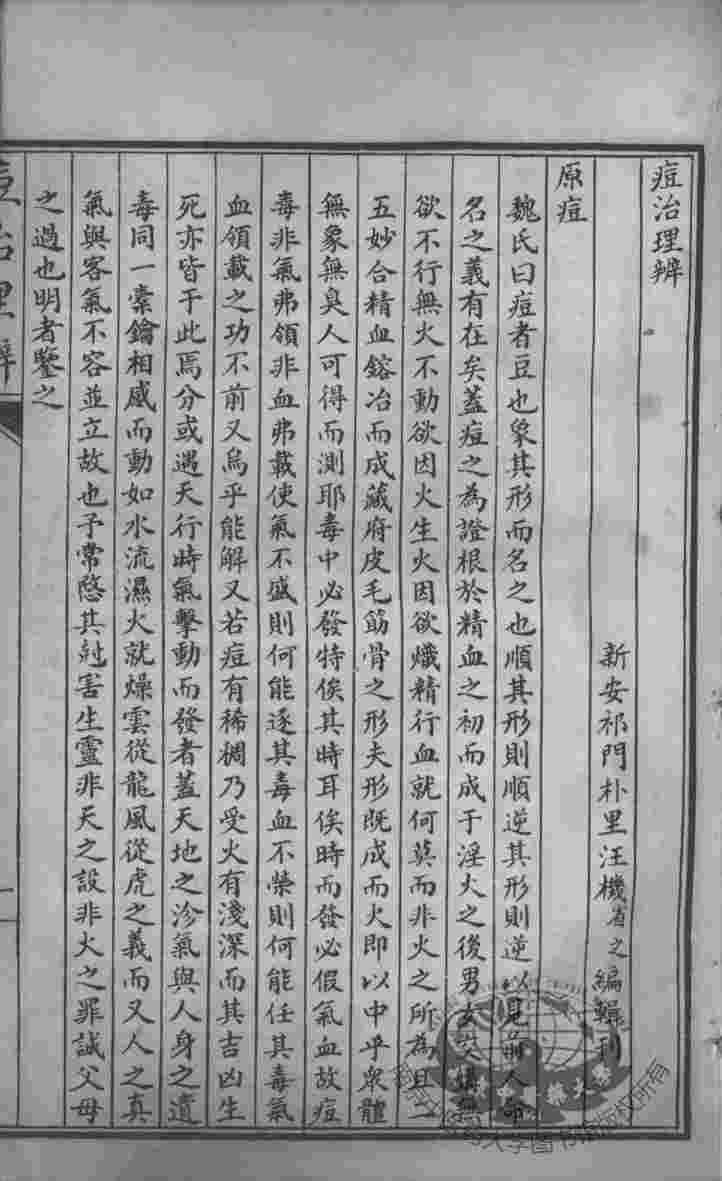 痘治理辨
新安祁門朴里汪機省之編輯刊
原痘
魏氏曰痘者豆也象其形而名之也順其形則順逆其形則逆以見前人命
名之義有在矣蓋痘之為證根於精血之初而成于淫火之後男女媾無
欲不行無火不動欲因火生火因欲熾精行血就何莫而非火之所為且二
五妙合精血鎔冶而成藏府皮毛筋骨之形夫形既成而火即以中乎衆體
無象無臭人可得而測耶毒中必發特俟其時耳俟時而發必假氣血故痘
毒非氣弗領非血弗載使氣不盛則何能逐其毒血不榮則何能任其毒氣
血領載之功不前又烏乎能解又若痘有稀稠乃受火有淺深而其吉凶生
死亦皆于此焉分或遇天行時氣擊動而發者蓋天地之沴氣與人身之遺
毒同一橐鑰相感而動如水流濕火就燥雲從龍風從虎之義而又人之真
氣與客氣不容並立故也予常愍其尅害生靈非天之設非火之罪誠父母
之過也明者鑒之
痘治理辨
一